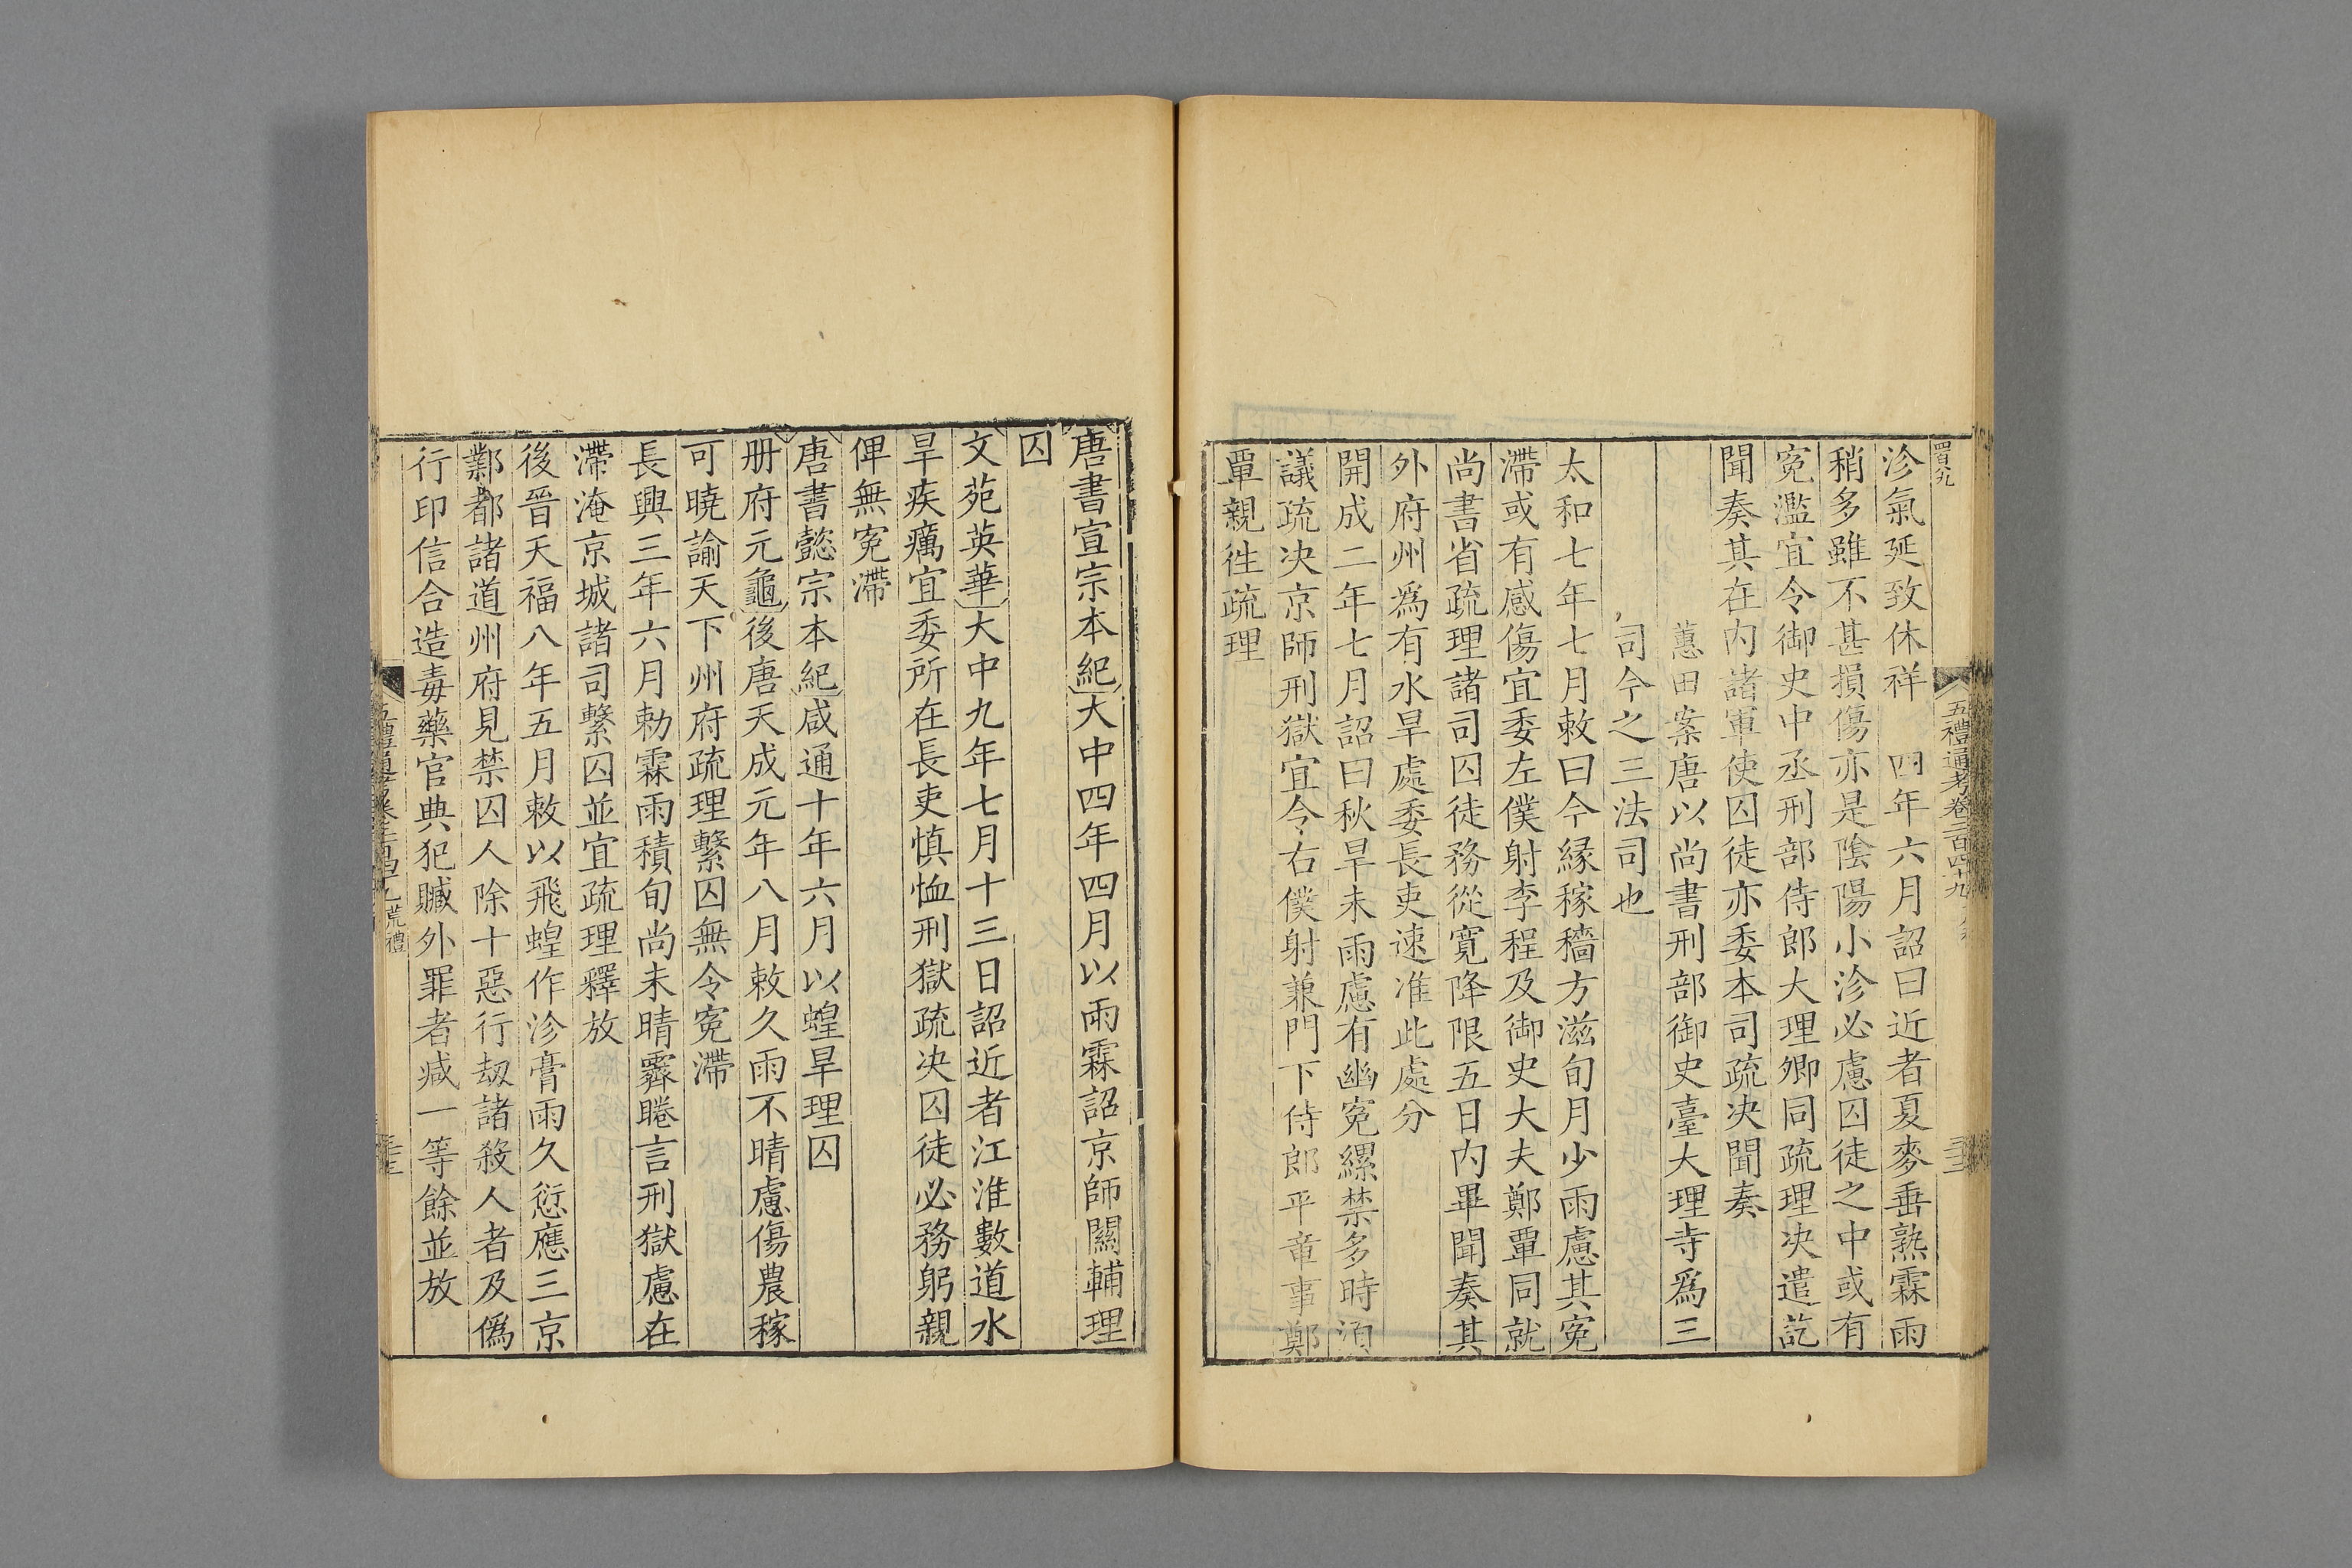 沴氣延致休祥　四年六月詔曰近者夏麥垂熟霖雨
稍多雖不甚損傷亦是陰陽小沴必慮囚徒之中或有
寃濫宜令御史中丞刑部侍郎大理卿同疏理决遣訖
聞奏其在内諸軍使囚徒亦委本司疏决聞奏
蕙田案唐以尚書刑部御史臺大理寺爲三
司今之三法司也
太和七年七月敕曰今緣稼穡方滋旬月少雨慮其寃
滯或有感傷宜委左僕射李程及御史大夫鄭覃同就
尚書省疏理諸司囚徒務從寛降限五日内畢聞奏其
外府州爲有水旱處委長吏速准此處分
開成二年七月詔曰秋旱未雨慮有幽寃縲禁多時須
議疏决京師刑獄宜令右僕射兼門下侍郎平章事鄭
覃親徃疏理
五禮通考卷二百四十九
唐書宣宗本紀大中四年四月以雨霖詔京師關輔理
囚
文苑英華大中九年七月十三日詔近者江淮數道水
旱疾癘宜委所在長吏慎恤刑獄疏决囚徒必務躬親
俾無寃滯
唐書懿宗本紀咸通十年六月以蝗旱理囚
册府元龜後唐天成元年八月敕久雨不晴慮傷農稼
可曉諭天下州府疏理繫囚無令寃滯
長興三年六月勅霖雨積旬尚未晴霽睠言刑獄慮在
滯淹京城諸司繫囚並宜疏理釋放
後晉天福八年五月敕以飛蝗作沴膏雨久愆應三京
鄴都諸道州府見禁囚人除十惡行刼諸殺人者及僞
行印信合造毒藥官典犯贓外罪者减一等餘並放